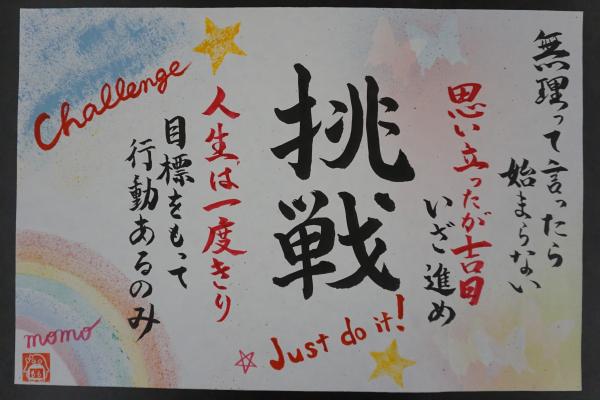 無理って言ったら
始まらない
思い立ったが吉日
いざ進め
挑戦
人生は一度きり
目標をもって
行動あるのみ
Challenge
Just do it!
momo